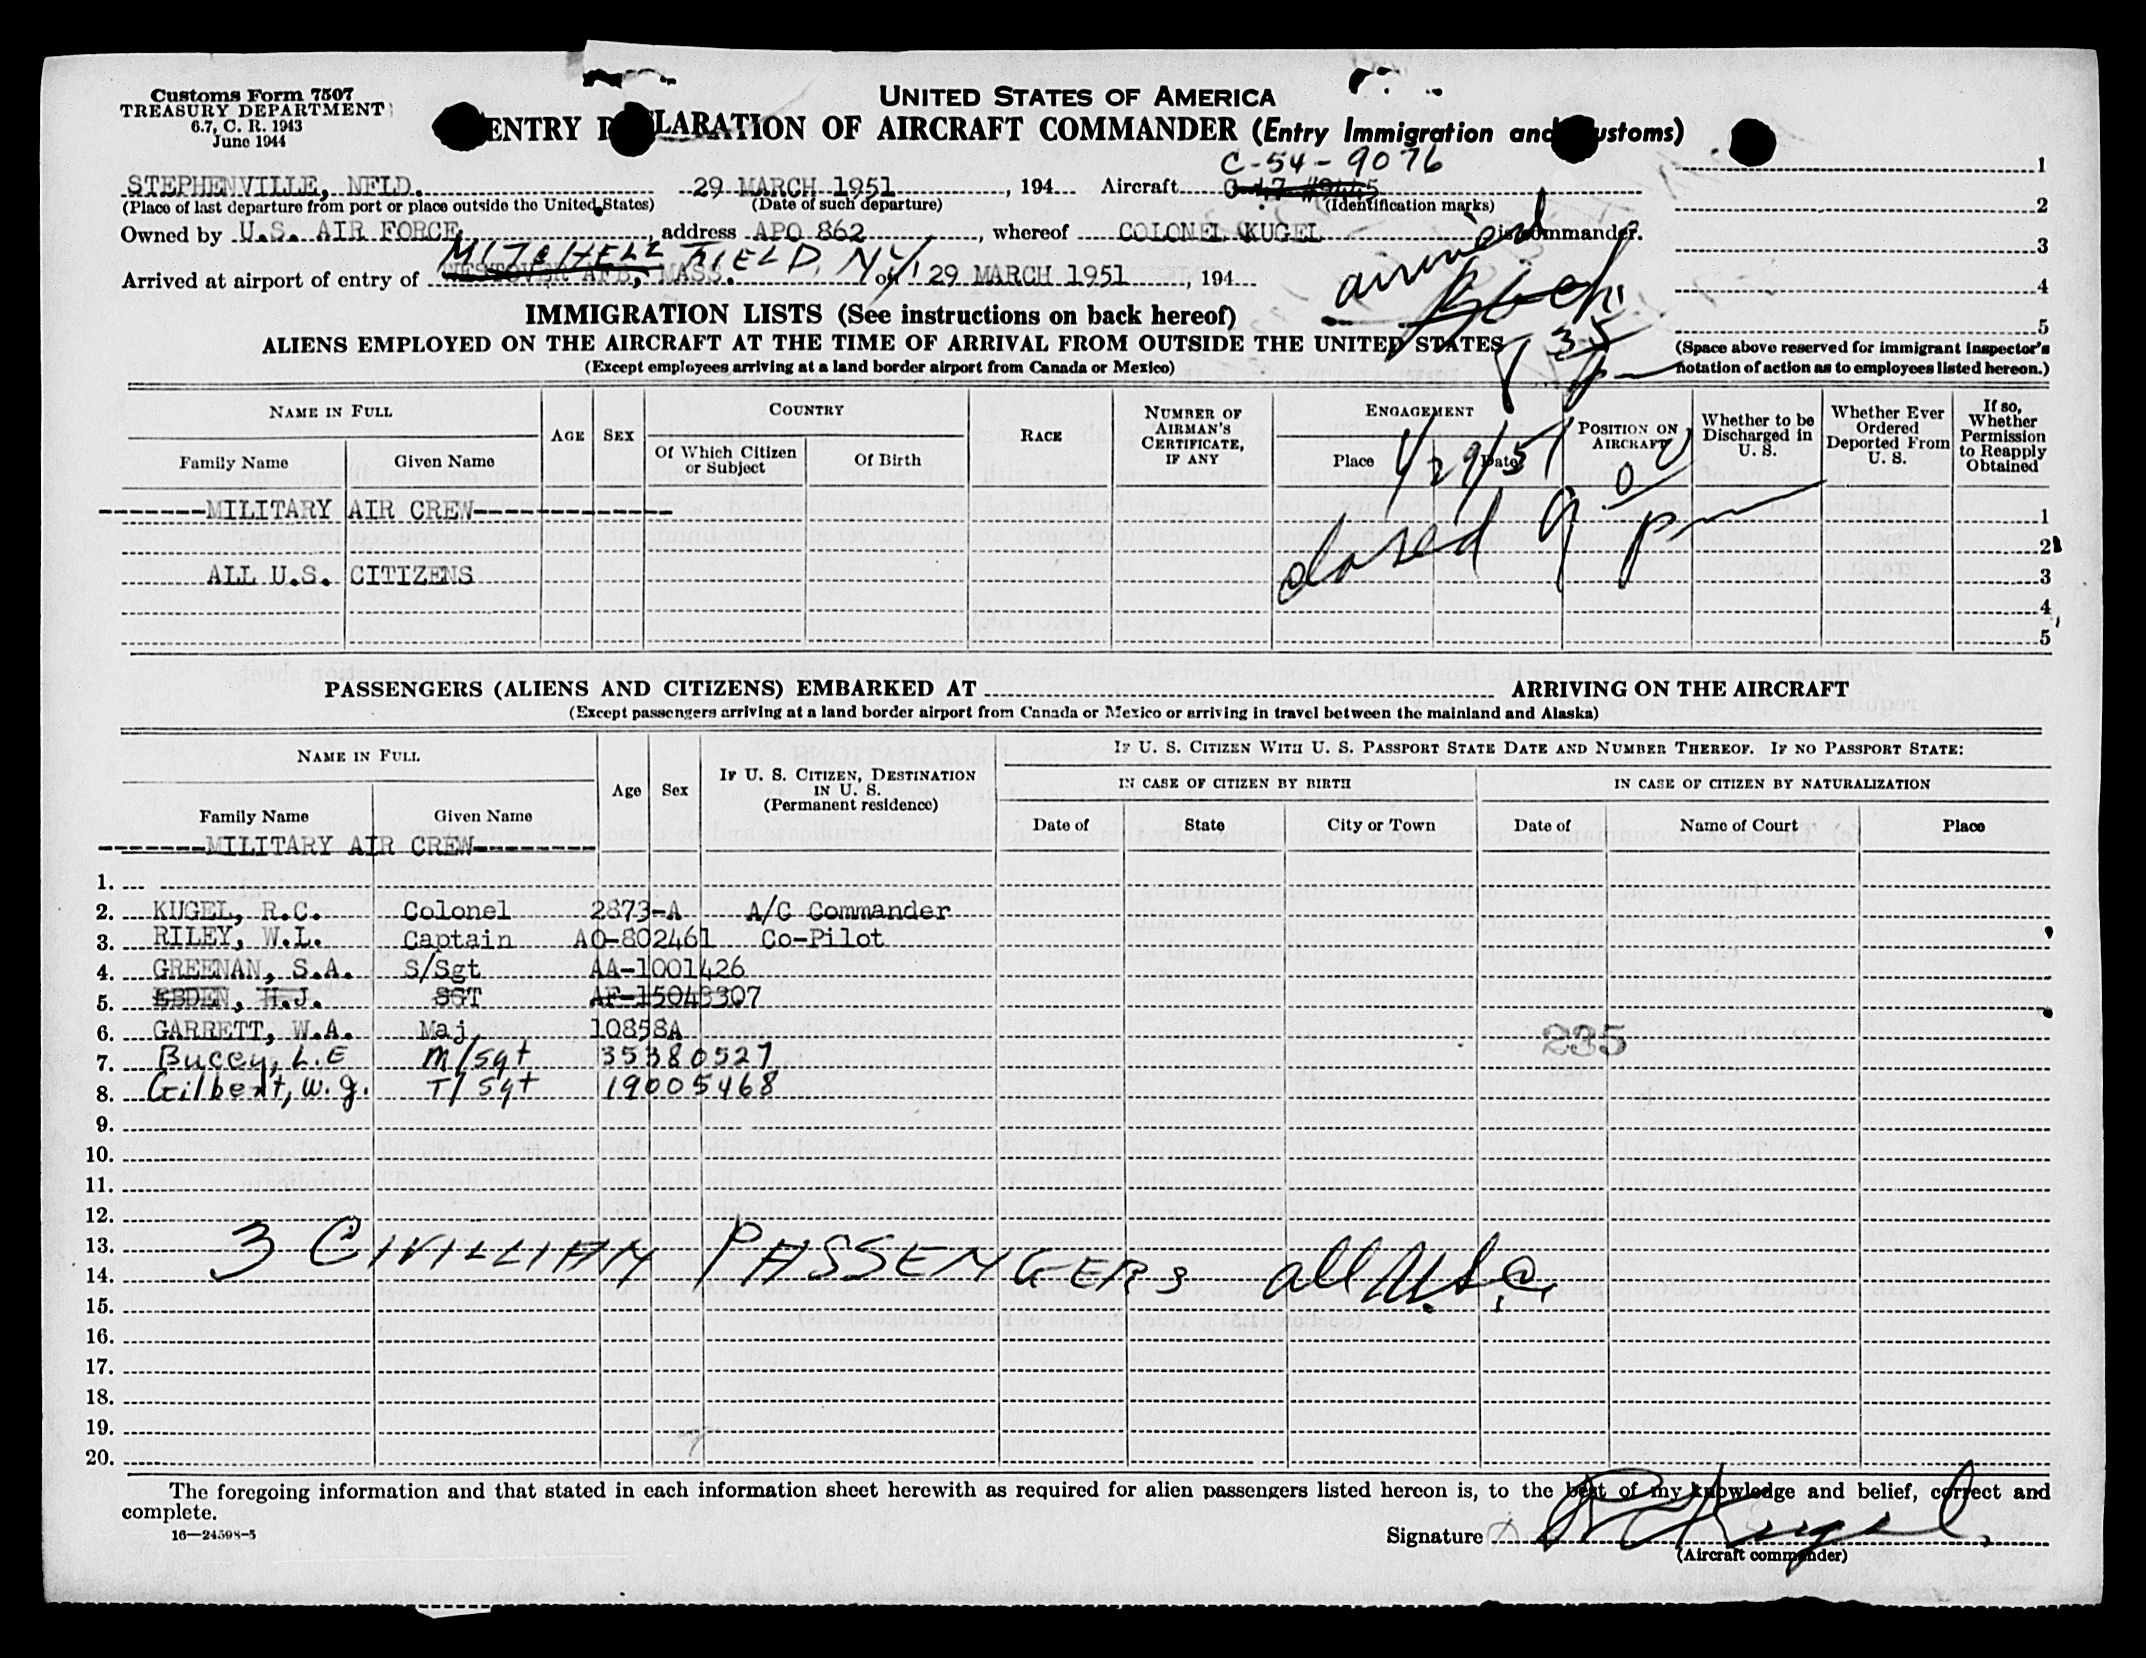 Customs Form 7507
TREASURY DEPARTMENT
6.7, C. R. 1943
June 1944
UNITED STATES OF AMERICA
ENTRY D LARATION OF AIRCRAFT COMMANDER (Entry Immigration and ustoms)
C-54-9076
STEPHENVILLE, NFLD. 29 MARCH 1951, 194 Aircraft C-47 #9445
(Place of last departure from port or place outside the United States) (Date of such departure) (Identification marks)
Owned by U.S. AIR FORCE, address APO 862, whereof COLONEL KUGEL is commander.
MITCHELL FIELD, NY
Arrived at airport of entry of WESTOVER AFB, MASS. on 29 MARCH 1951, 194
arrived
8 35 p
1
2
3
4
5
(Space above reserved for immigrant inspector's notation of action as to employees listed hereon.)
IMMIGRATION LISTS (See instructions on back hereof)
ALIENS EMPLOYED ON THE AIRCRAFT AT THE TIME OF ARRIVAL FROM OUTSIDE THE UNITED STATES
(Except employees arriving at a land border airport from Canada or Mexico)
NAME IN FULL AGE SEX COUNTRY RACE NUMBER OF AIRMAN'S CERTIFICATE, IF ANY ENGAGEMENT POSITION ON AIRCRAFT Whether to be Discharged in U. S. Whether Ever Ordered Deported From U. S. If so, Whether Permission to Reapply Obtained
Family Name Given Name Of Which Citizen or Subject Of Birth Place Date
-------MILITARY AIR CREW------------- 1
2
ALL U.S. CITIZENS 3
4
5
closed 9 00 pm
PASSENGERS (ALIENS AND CITIZENS) EMBARKED AT ARRIVING ON THE AIRCRAFT
(Except passengers arriving at a land border airport from Canada or Mexico or arriving in travel between the mainland and Alaska)
NAME IN FULL Age Sex IF U. S. CITIZEN, DESTINATION IN U. S. (Permanent residence) IF U. S. CITIZEN WITH U. S. PASSPORT STATE DATE AND NUMBER THEREOF. IF NO PASSPORT STATE:
IN CASE OF CITIZEN BY BIRTH IN CASE OF CITIZEN BY NATURALIZATION
Family Name Given Name Date of State City or Town Date of Name of Court Place
-------MILITARY AIR CREW--------
1.
2. KUGEL, R.C. Colonel 2873-A A/C Commander
3. RILEY, W.L. Captain AO-802461 Co-Pilot
4. GREENAN, S.A. S/Sgt AA-1001426
5. EBDEN, H.J. SGT AF-15043307
6. GARRETT, W.A. Maj 10858A 235
7. Bucey, L.E M/Sgt 35380527
8. Gilbert, W.G. T/Sgt 19005468
9.
10.
11.
12.
13. 3 CIVILLIAN PASSENGERS all U.S.C.
14.
15.
16.
17.
18.
19.
20.
The foregoing information and that stated in each information sheet herewith as required for alien passengers listed hereon is, to the best of my knowledge and belief, correct and
complete.
16—24598-5
Signature R C Kugel
(Aircraft commander)